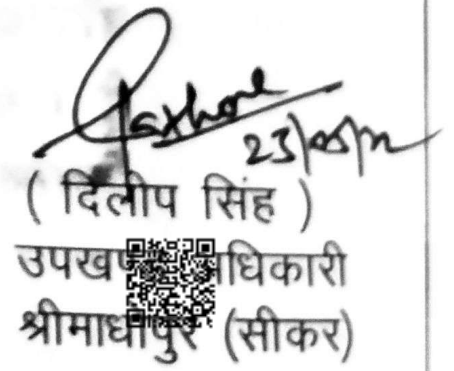 23/05/22
( दिलीप सिंह )
उपखण्ड अधिकारी
श्रीमाधोपुर (सीकर)